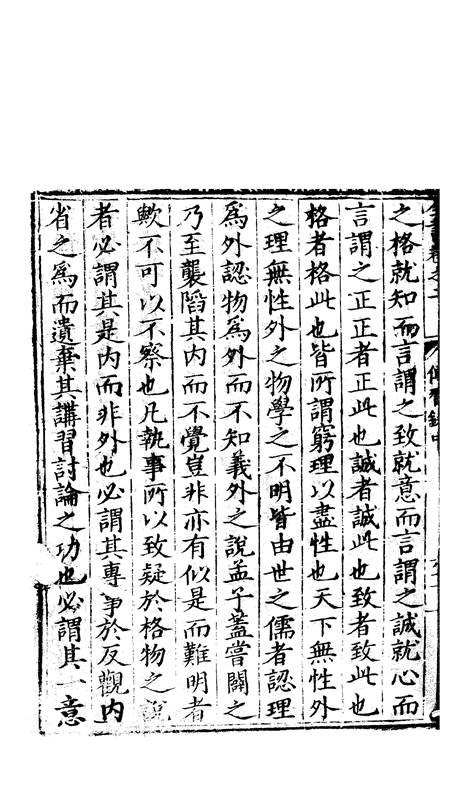 全書卷之二　傳習錄中
之格就知而言謂之致就意而言謂之誠就心而
言謂之正正者正此也誠者誠此也致者致此也
格者格此也皆所謂窮理以盡性也天下無性外
之理無性外之物學之不明皆由世之儒者認理
為外認物為外而不知義外之說孟子蓋嘗闢之
乃至襲陷其內而不覺豈非亦有似是而難明者
歟不可以不察也凡執事所以致疑於格物之說
者必謂其是內而非外也必謂其專事於反觀內
省之為而遺棄其講習討論之功也必謂其一意